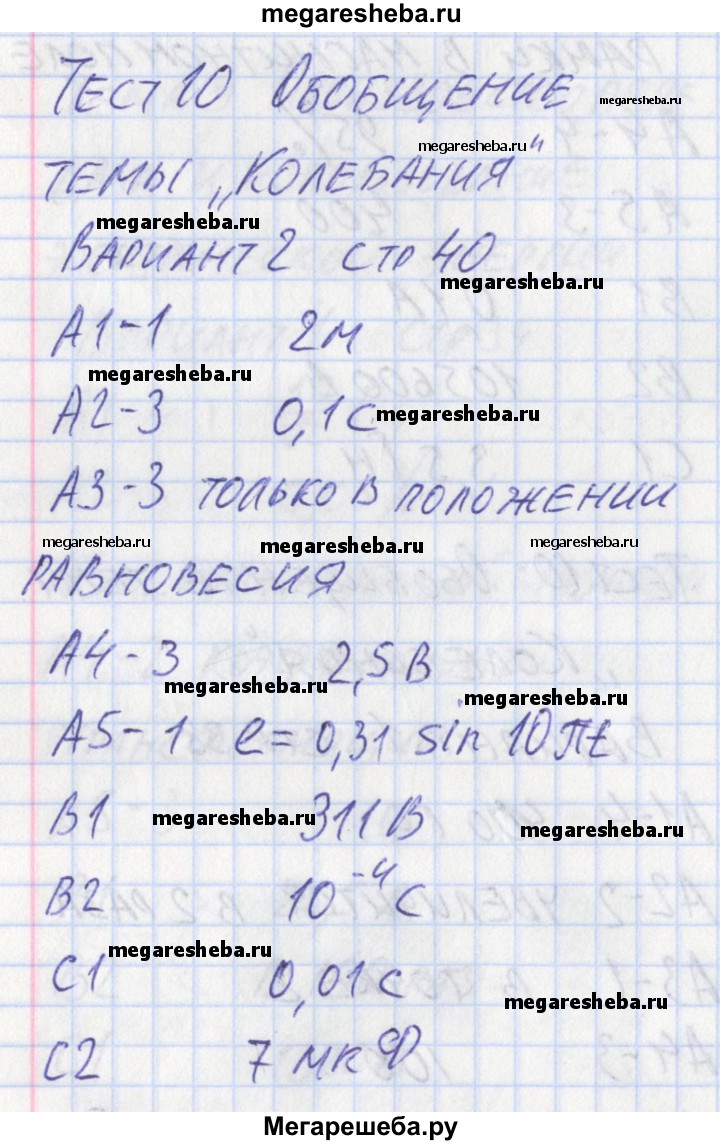 megaresheba.ru
Тест 10 Обобщение
megaresheba.ru
megaresheba.ru
темы „Колебания"
megaresheba.ru
Вариант 2 стр 40
megaresheba.ru
А1-1 2м
megaresheba.ru
А2-3 0,1с
megaresheba.ru
А3-3 только в положении
megaresheba.ru megaresheba.ru megaresheba.ru
равновесия
А4-3 2,5 В
megaresheba.ru
megaresheba.ru
А5-1 e=0,31 sin 10πt
В1 311 В
megaresheba.ru
megaresheba.ru
В2 10⁻⁴ с
megaresheba.ru
С1 0,01с
megaresheba.ru
С2 7 мкФ
Мегарешеба.ру